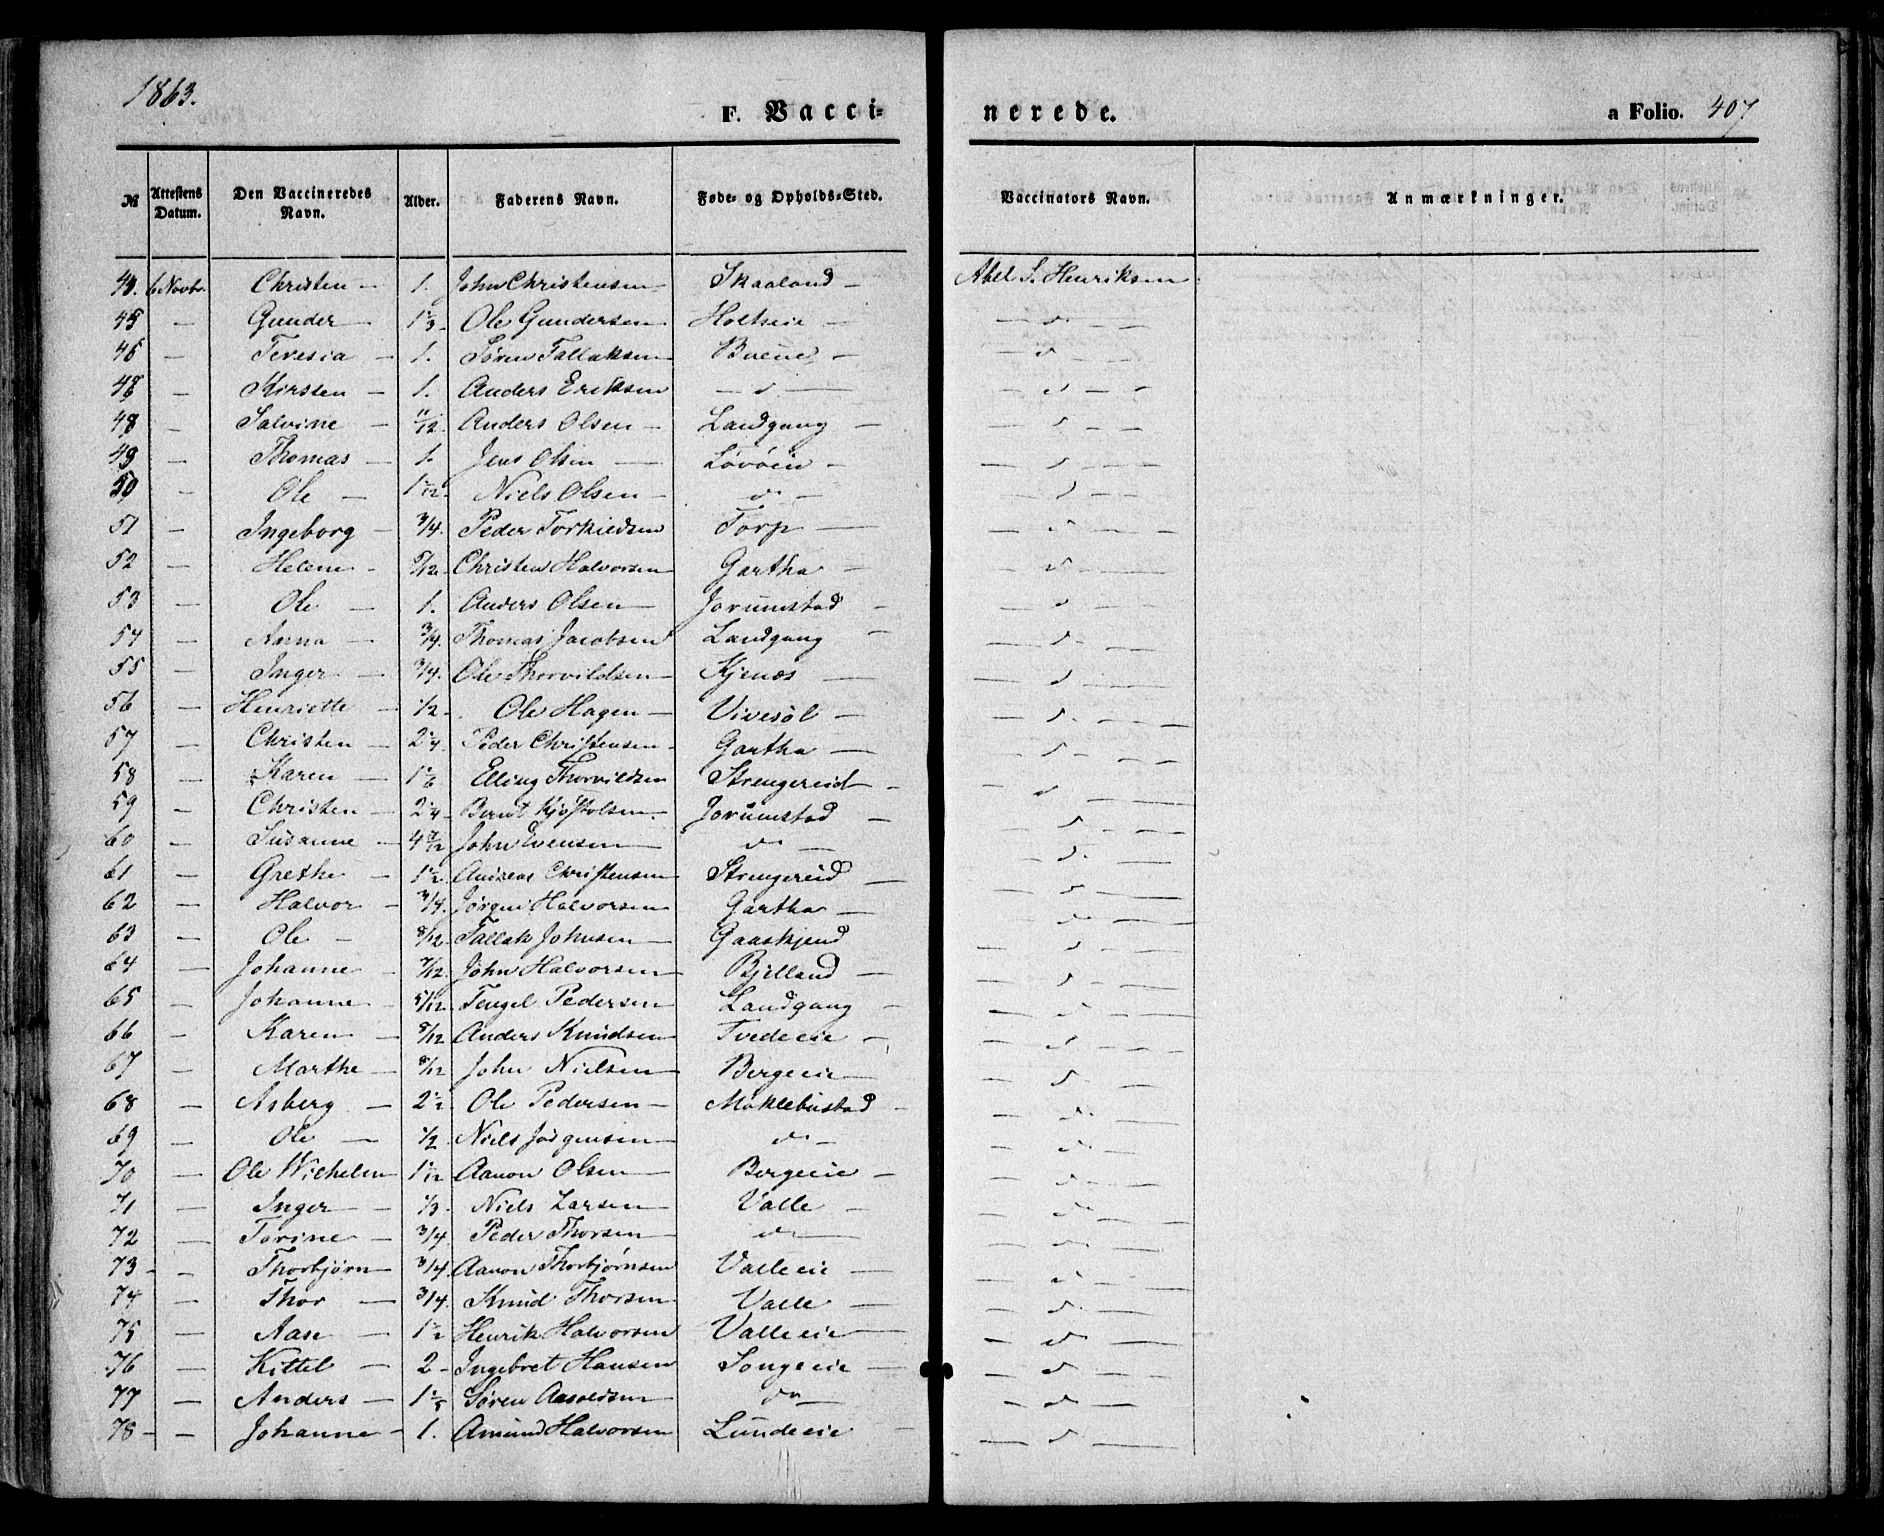 1863.
F. Vacci-
nerede.
a Folio. 407
№
Attestens Datum.
Den Vaccineredes Navn.
Alder.
Faderens Navn.
Føde- og Opholds-Sted.
Vaccinators Navn.
Anmærkninger.
6 Novbr. Christen — 1. John Christensen — Skaaland — Abel S. Henriksen
45 — Gunder — 1 1/3 — Ole Gundersen — Holteeie — — d — —
46 — Teresia — 1. Søren Tallaksen — Bueeie — — d — —
— Kirsten — 1. Anders Eriksen — d — — d — —
48 — Salvine — 11/12. Anders Olsen — Landgang — — d — —
49 — Thomas — 1. Jens Olsen — Løvøeie — — d — —
50 — Ole — 1 1/12 — Niels Olsen — d — — d — —
51 — Ingeborg — 3/4. Peder Torkildsen Torp — — d — —
52 — Helene — 5/12 Christen Halvorsen — Gartha — — d — —
53 — Ole — 1. Anders Olsen — Jorumstad — — d — —
54 — Anna — 3/4. Thomas Jacobsen Landgang — — d — —
55 — Inger — 3/4. Ole Thorvildsen — Kjenes — — d —
56 — Henriette — 1/2 — Ole Hagen — Vivesøl — — d — —
57 — Christen — 2 1/4 — Peder Christensen — Gartha — — d — —
58 — Karen — 1 1/6 Elling Thorvildsen Strengereid — — d — —
59 — Christen — 2 1/4 — Berndt Kjøstolsen — Jorumstad — — d — —
60 — Susanne — 4 7/12 John Evensen — d — — d — —
61 — Grethe — 1 1/2 Andreas Christensen Strengereid — — d — —
62 — Halvor — 3/4. Jørgen Halvorsen — Gartha — — d — —
63 — Ole — 8/12. Tallak Johnsen — Gaaskjend — d — —
64 — Johanne — 7/12. John Halvorsen — Bjelland — — d — —
65 — Johanne — 5/12. Tengel Pedersen — Landgang — — d — —
66 — Karen — 8/12 Anders Knudsen — Tvedeeie — — d — —
67 — Marthe — 8/12 John Nielsen — Bergeeie — — d — —
68 — Asberg — 2 1/2. Ole Pedersen — Møklebustad — — d — —
69 — Ole — 1/2 Niels Jørgensen — d — — d — —
70 — Ole Wilhelm 1 1/12 Aanon Olsen — Bergeeie — — d — —
71 — Inger — 1/3. Niels Larsen — Valle — — d — —
72 — Torine — 3/4 Peder Thorsen — d — — d — —
73 — — Thorbjørn — 3/4. Aanon Thorbjørnsen Valleeie — — d — —
74 — Thor — 3/4. Knud Thorsen — Valle — — d — —
75 — Aase — 1 1/2 Henrik Halvorsen Valleeie — — d — —
76 — Kittel — 2 — Ingebret Hansen Songeeie — — d — —
77 — Anders — 1 1/5 Søren Aasoldsen — do — — d — —
78 — — Johanne — 1. Amund Halvorsen — Lundeeie — — d — —